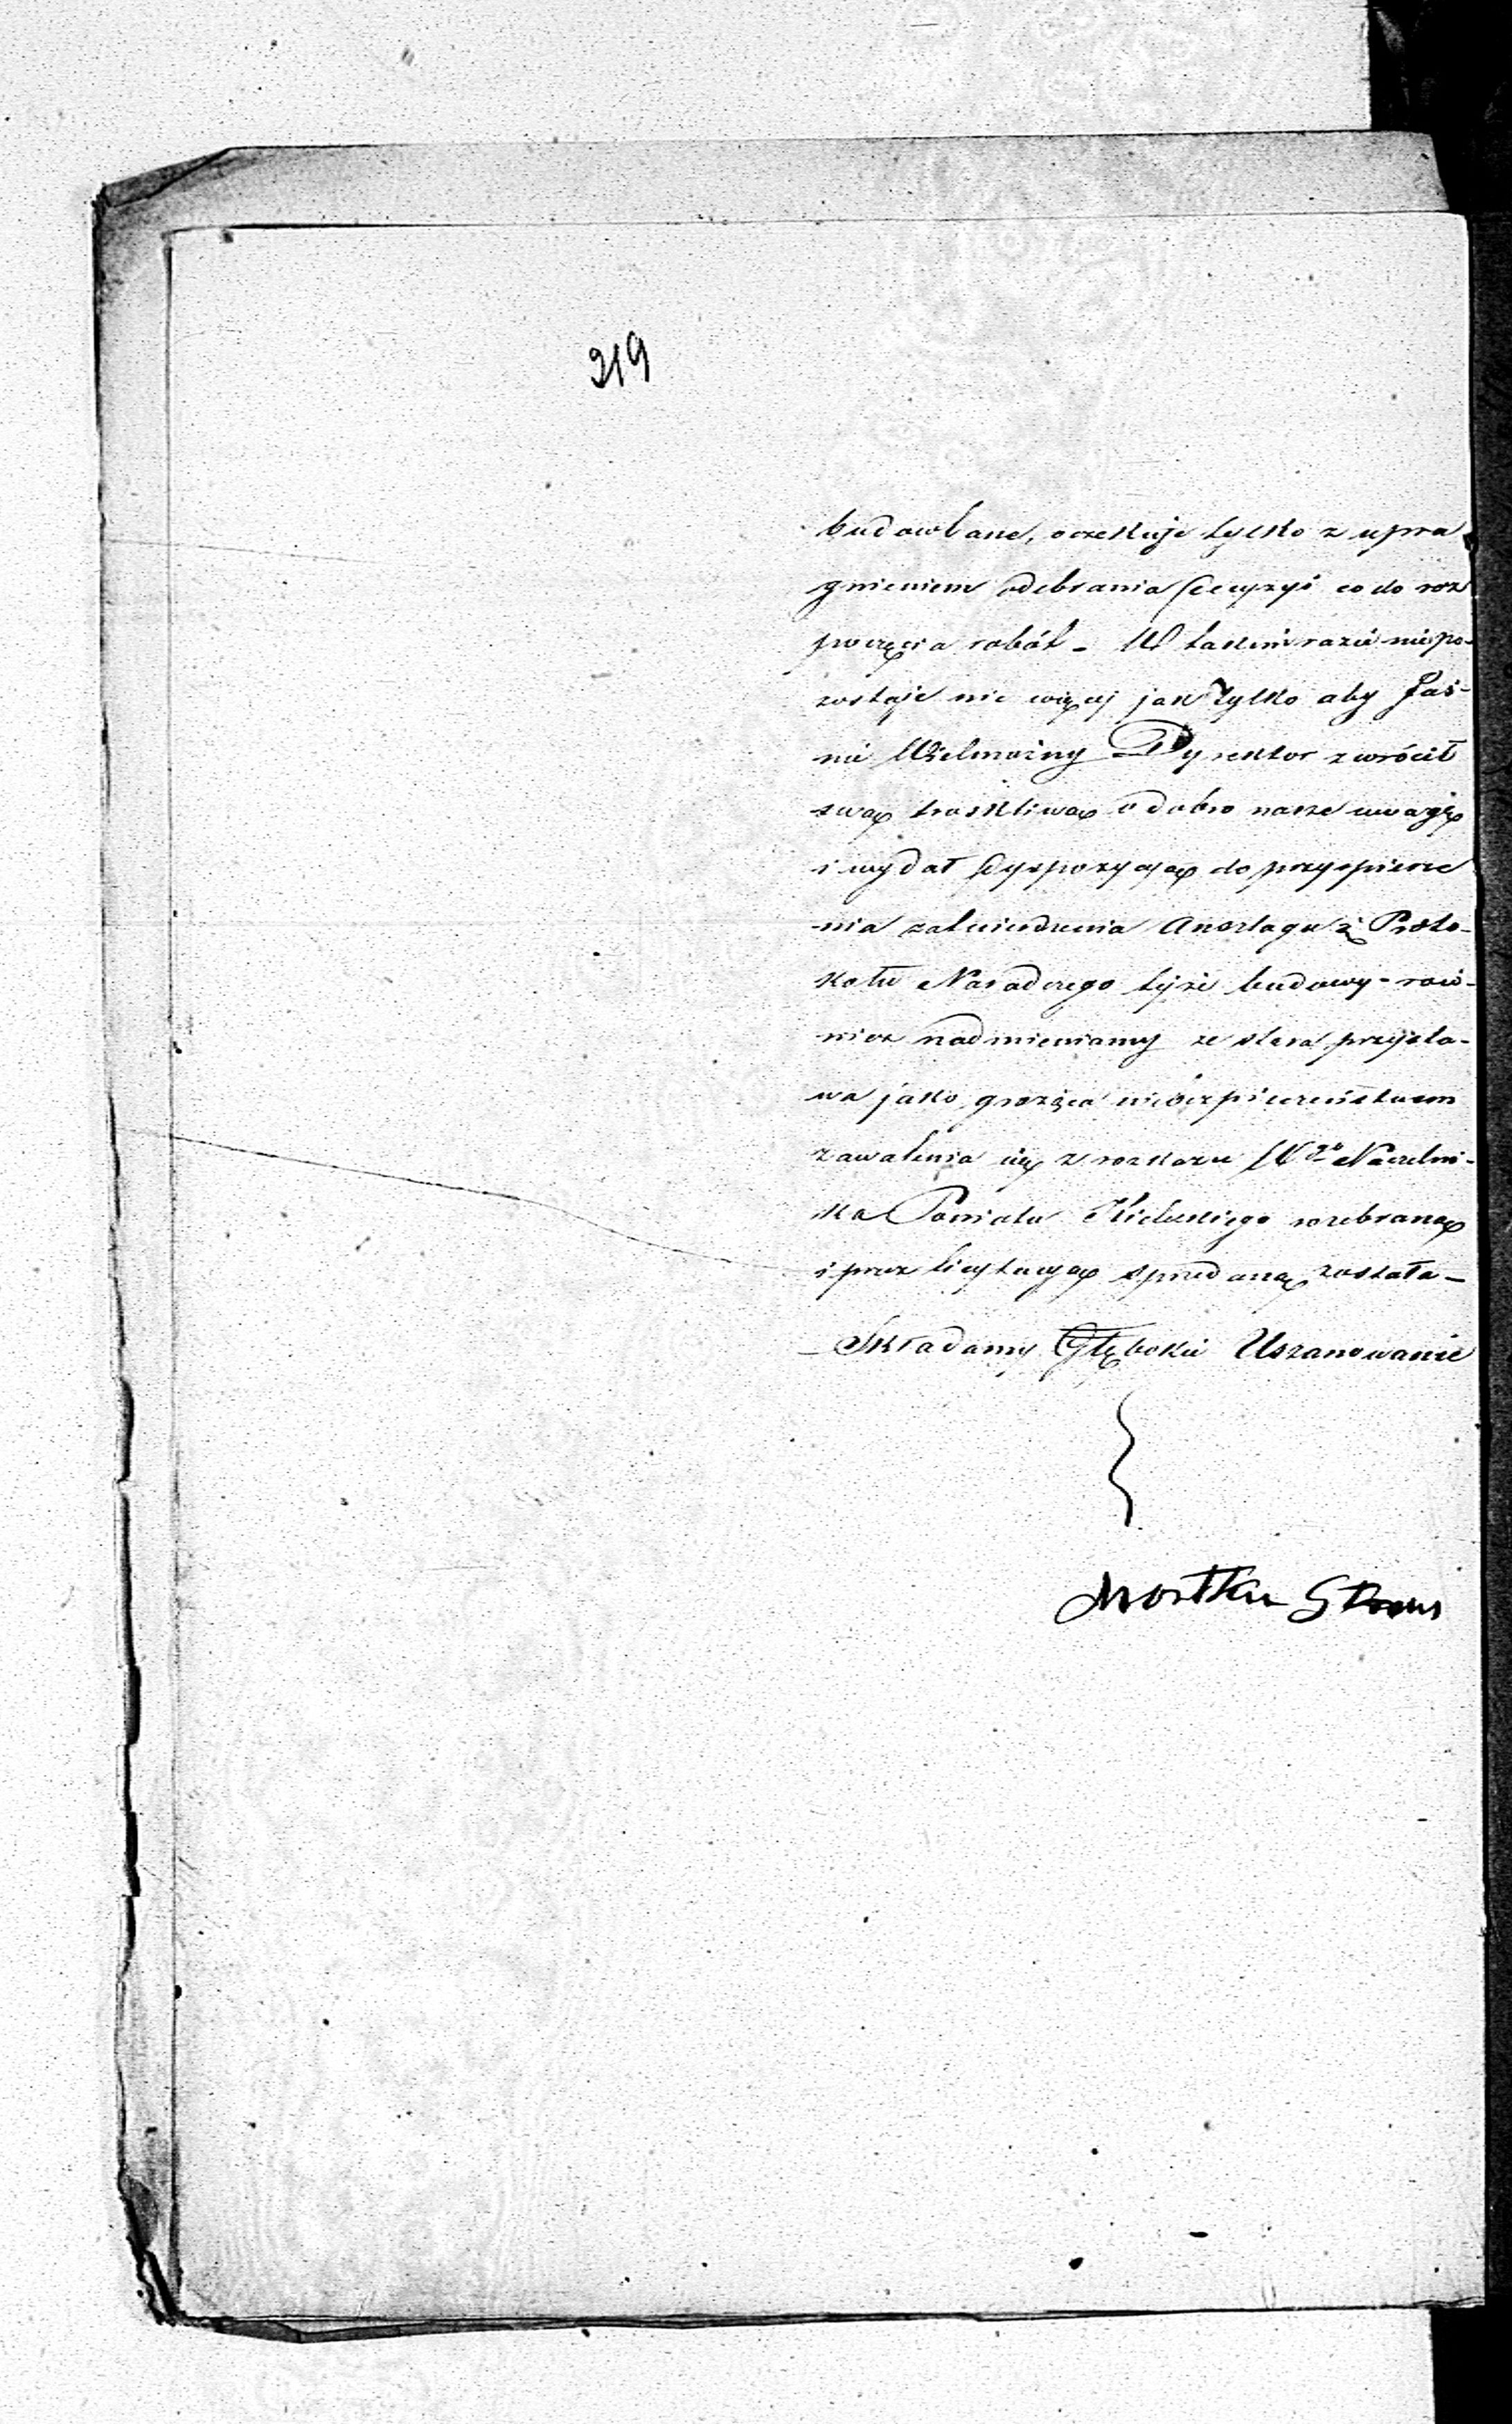 219
budowlane, oczekuje tylko z upra
gnieniem odebrania Decyzyi co do roz
poczęcia robót – W takim razie niepo-
zostaje nic więcej jak tylko aby Jaś-
nie Wielmożny Dyrektor zwrócił
swą troskliwą o dobro nasze uwagę
i wydał Dyspozycyą do przyspiesze
nia zatwierdzenia Anszlagu z Proto-
kołu Naradczego tejże budowy – rów-
nież nadmieniamy że stara
wa jako grożąca niebezpieczeństwem
zawalenia się z rozkazu Wgo Naczelni-
ka Powiatu Kieleckiego rozebraną
i przez licytacyą sprzedaną została –
– Składamy Głębokie Uszanowanie